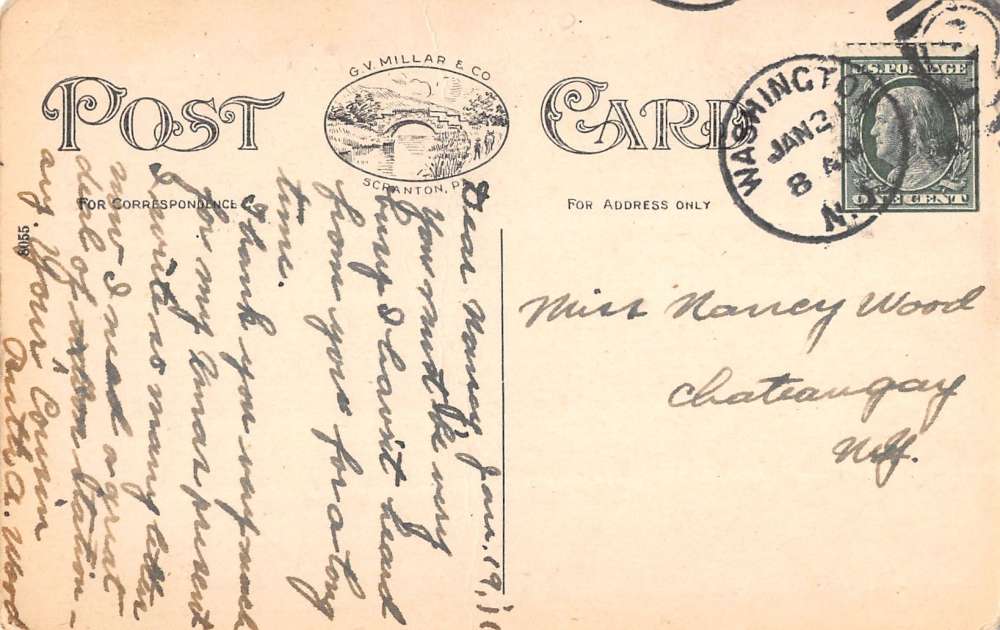 POST CARD
G.V. MILLAR & CO
SCRANTON, PA
FOR CORRESPONDENCE
FOR ADDRESS ONLY
8055
WASHINGTON
JAN 2
8 AM
N.J.
U.S. POSTAGE
ONE CENT
Miss Nancy Wood
Chateaugay
N.Y.
Dear Nancy, Jan. 19, 1
You must be very
busy I havn't heard
from you for a long
time.
Thank you very much
for my Xmas present
I write so many letters
now I need a great
deal of Station-
ary. Your Cousin
A. Wood